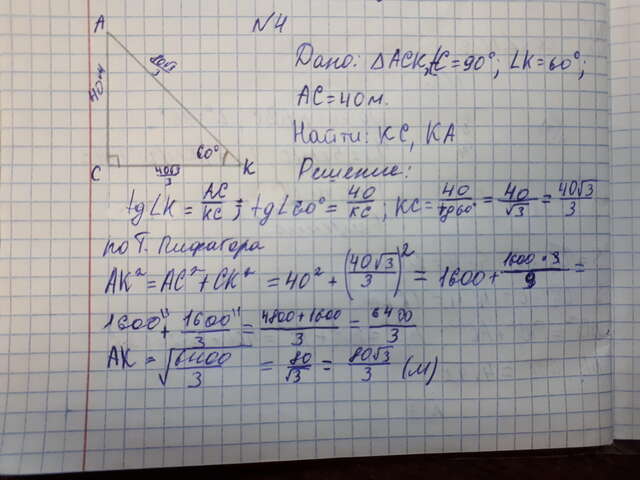 N4
A
80√3/3
40м
C
40√3/3
60°
K
Дано: △ACK, ∠C=90°; ∠K=60°;
AC=40м.
Найти: KC, KA
Решение:
tg∠K = AC/KC; tg∠60° = 40/KC; KC = 40/tg60° = 40/√3 = 40√3/3
по Т. Пифагора
AK² = AC² + CK² = 40² + (40√3/3)² = 1600 + 1600·3/9 =
1600 + 1600/3 = 4800+1600/3 = 6400/3
AK = √6400/3 = 80/√3 = 80√3/3 (м)